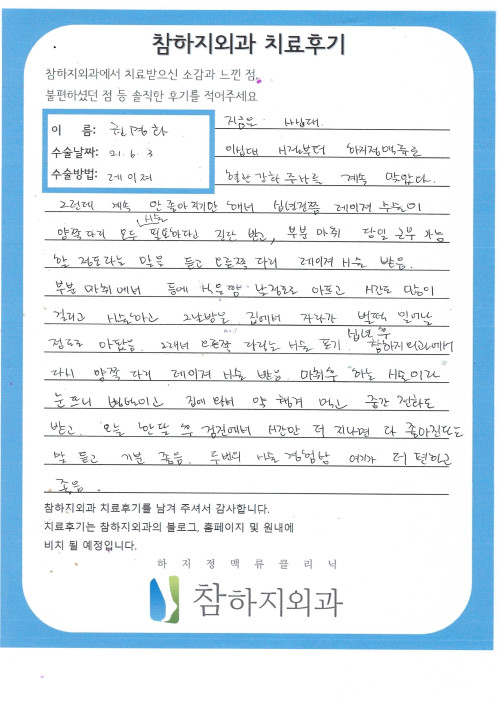 참하지외과 치료후기
참하지외과에서 치료받으신 소감과 느낀 점,
불편하셨던 점 등 솔직한 후기를 적어주세요
이 름:
수술날짜: 21. 6. 3
수술방법: 레이저
지금은 사십대.
이십대 시절부터 하지정맥류로
혈관강화 주사를 계속 맞았다.
그런데 계속 안 좋아지기만 해서 십년전쯤 레이저 수술이
양쪽 다리 모두 수술 필요하다고 진단 받고, 부분 마취 당일 근무 가능
할 정도라는 말을 듣고 오른쪽 다리 레이저 시술 받음.
부분 마취에서 등에 식은땀 날정도로 아프고 시간도 많이
걸리고 시술하고 그날밤은 집에서 자다가 벌떡 일어날
정도로 아팠음. 그래서 오른쪽 다리는 시술 포기. 십년 후 참하지외과에서
다시 양쪽 다리 레이저 시술 받음. 마취후 하는 시술이라
눈뜨니 병실이고 집에 와서 약 챙겨 먹고 중간 전화도
받고. 오늘 한달 후 검진에서 시간만 더 지나면 다 좋아진다는
말 듣고 기분 좋음. 두번의 시술 경험상 여기가 더 편하고
좋음.
참하지외과 치료후기를 남겨 주셔서 감사합니다.
치료후기는 참하지외과의 블로그, 홈페이지 및 원내에
비치 될 예정입니다.
하지정맥류클리닉
참하지외과